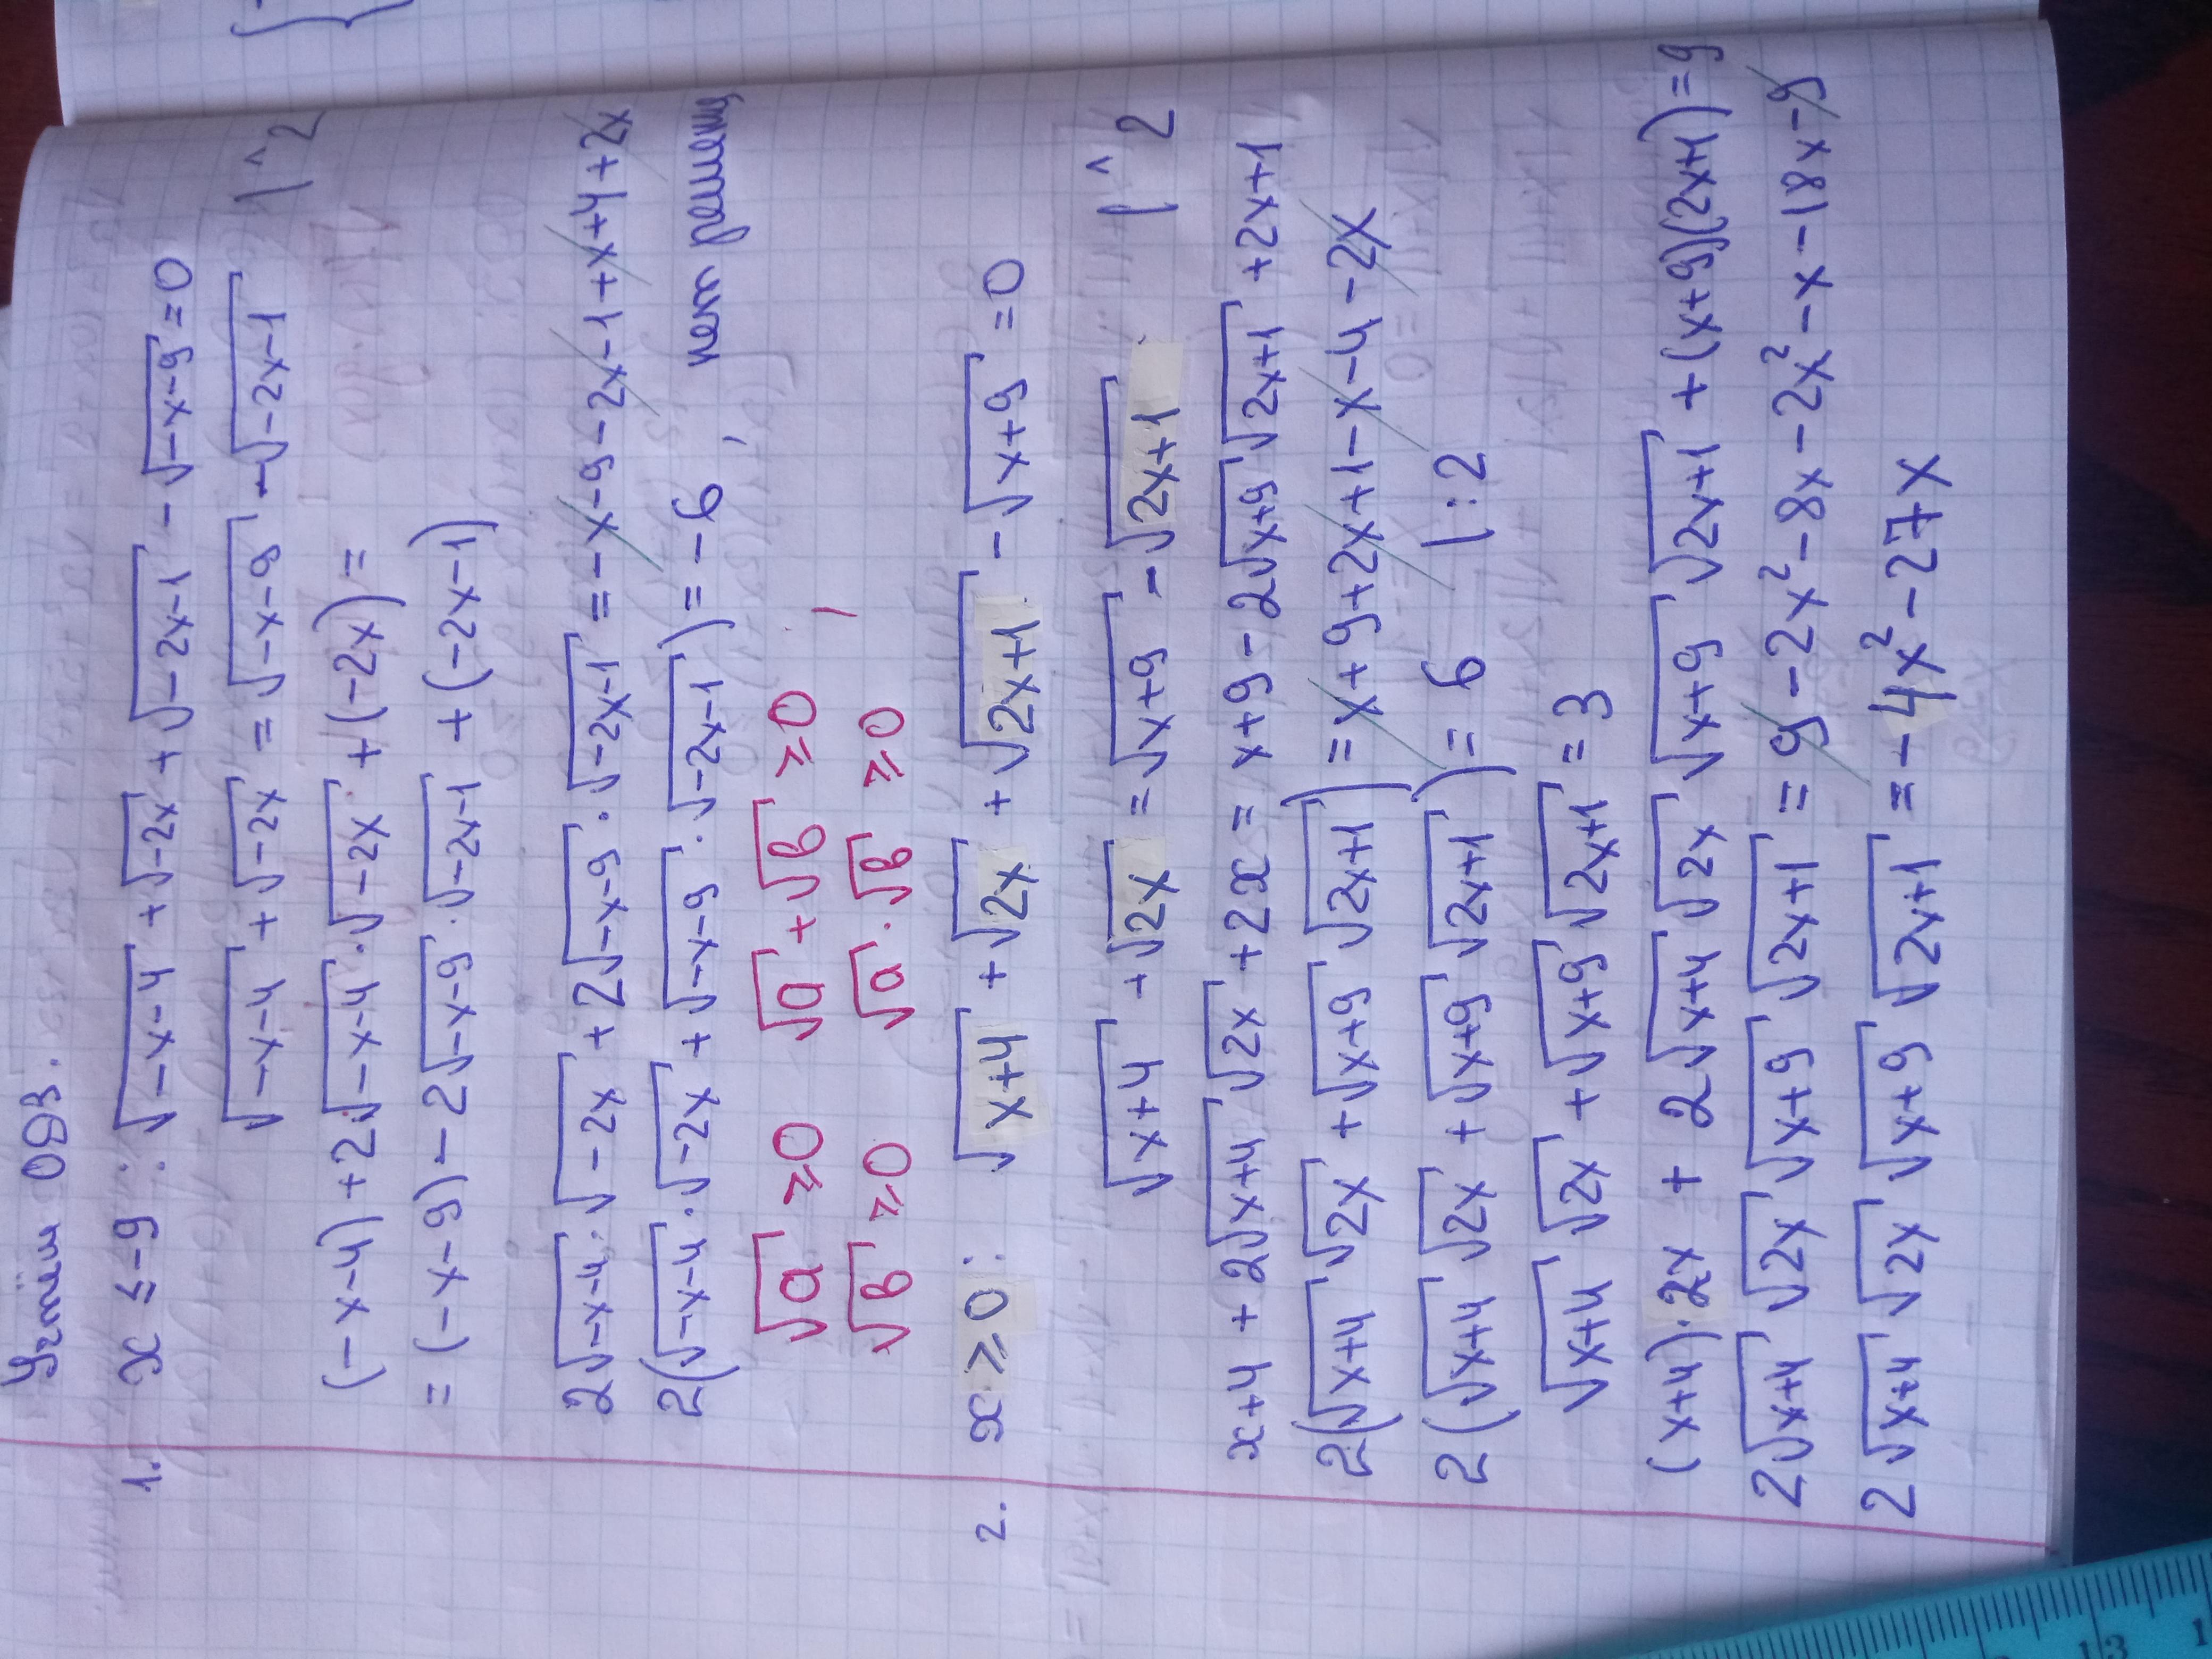 Учтём ОДЗ.
1. x ≤ -9: √(-x-4) + √(-2x) + √(-2x-1) - √(-x-9) = 0
√(-x-4) + √(-2x) = √(-x-9) - √(-2x-1) | ^ 2
(-x-4) + 2√(-x-4) · √(-2x) + (-2x) =
= (-x-9) - 2√(-x-9) · √(-2x-1) + (-2x-1)
2√(-x-4) · √(-2x) + 2√(-x-9) · √(-2x-1) = -x-9-2x-1+x+4+2x
2(√(-x-4) · √(-2x) + √(-x-9) · √(-2x-1)) = -6, нет решений
√a ≥ 0 √a + √b ≥ 0
√b ≥ 0 √a · √b ≥ 0
2. x ≥ 0: √(x+4) + √(2x) + √(2x+1) - √(x+9) = 0
√(x+4) + √(2x) = √(x+9) - √(2x+1) | ^ 2
x+4 + 2√(x+4) √(2x) + 2x = x+9 - 2√(x+9) √(2x+1) + 2x+1
2(√(x+4) √(2x) + √(x+9) √(2x+1)) = x+9+2x+1-x-4-2x
2(√(x+4) √(2x) + √(x+9) √(2x+1)) = 6 | : 2
√(x+4) √(2x) + √(x+9) √(2x+1) = 3
(x+4)·2x + 2√(x+4) √(2x) √(x+9) √(2x+1) + (x+9)(2x+1) = 9
2√(x+4) √(2x) √(x+9) √(2x+1) = 9-2x²-8x-2x²-x-18x-9
2√(x+4) √(2x) √(x+9) √(2x+1) = -4x²-27x